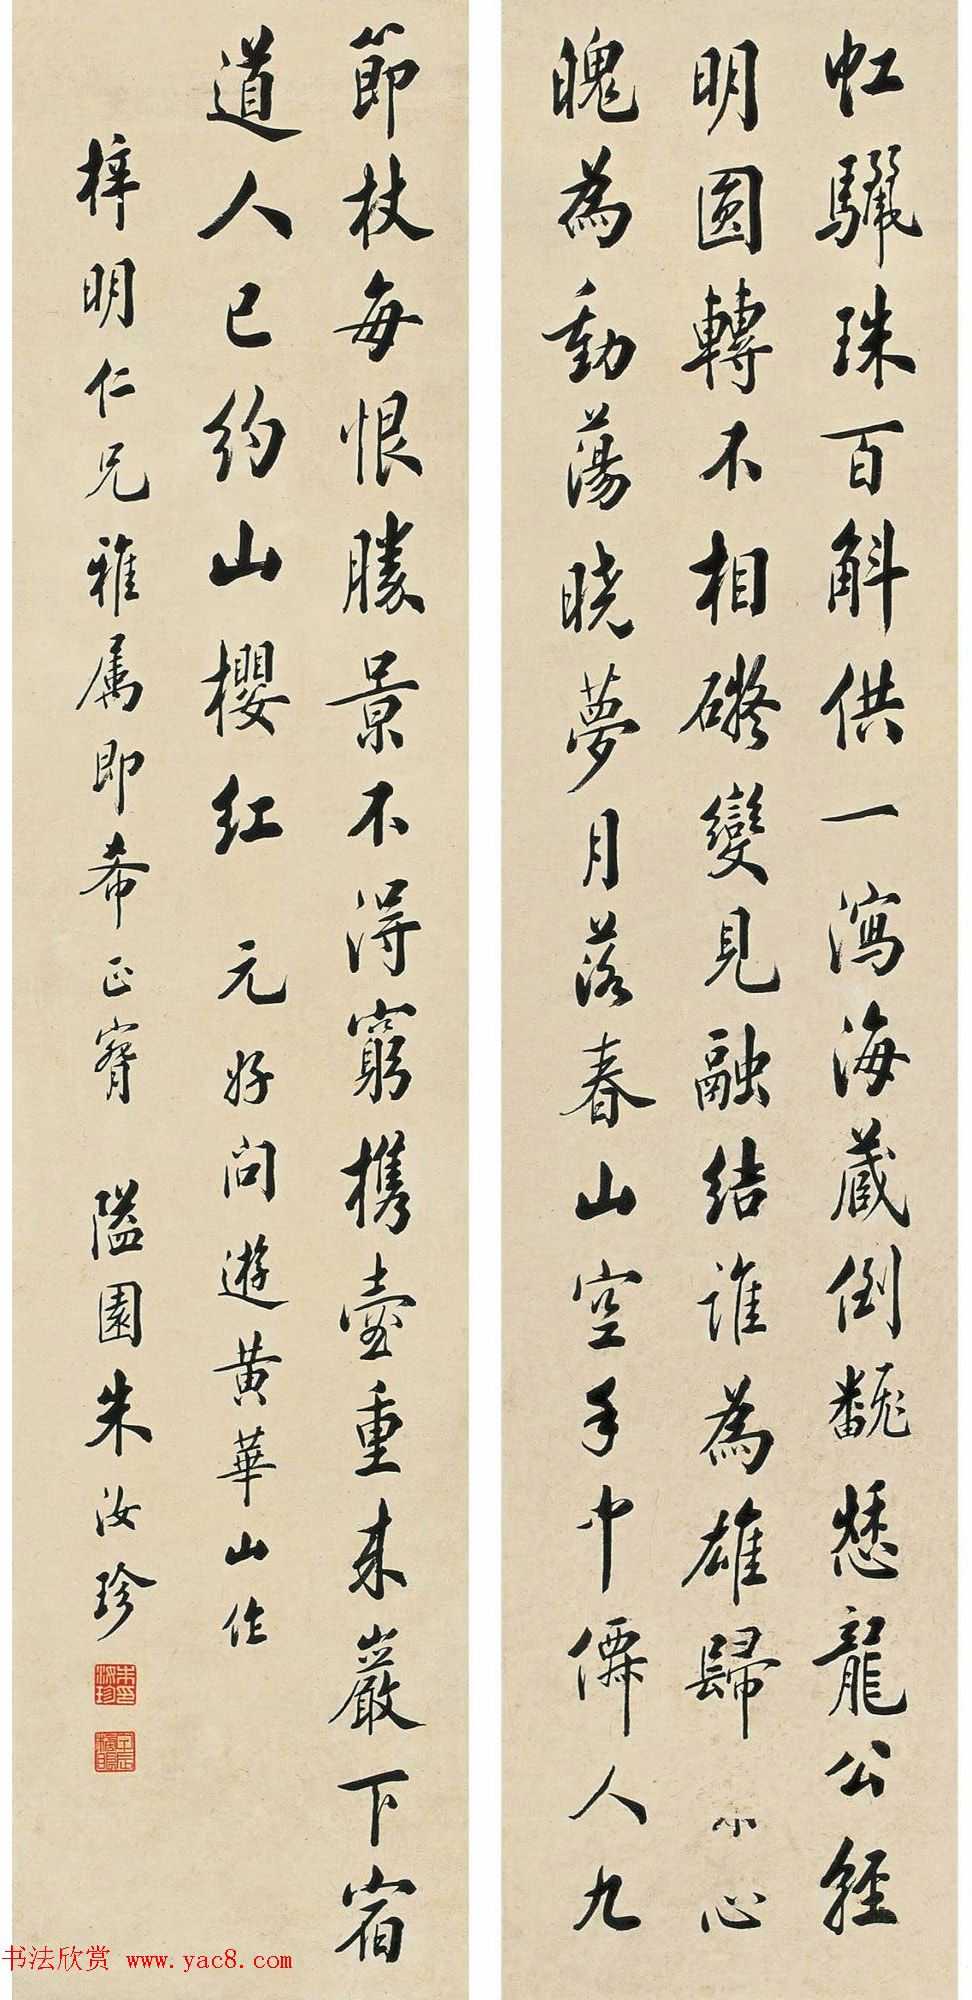 虹驪珠百斛供一瀉海藏倒翻愁龍公輕
明圓轉不相礙變見融結誰為雄歸小心
魄為動蕩曉夢月落春山空手中僊人九
節杖每恨勝景不得窮攜壺重來巖下宿
道人已約山櫻紅 元好問遊黃華山作
梓明仁兄雅属即希正寄 隘園朱汝珍
朱汝珍印
书法欣赏 www.yac8.com